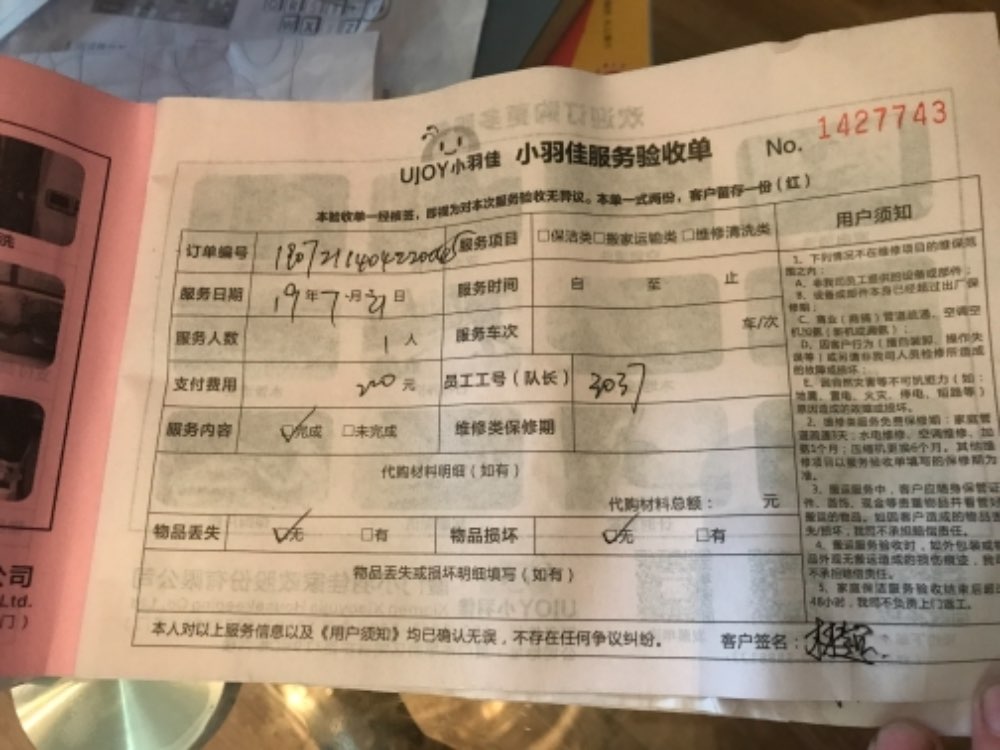 UJOY小羽佳 小羽佳服务验收单 No. 1427743
本验收单一经核签，即视为对本次服务验收无异议。本单一式两份，客户留存一份（红）
订单编号 服务项目 □保洁类□搬家运输类□维修清洗类
服务日期 19年7月21日 服务时间 自 至 止
服务人数 1人 服务车次 车/次
支付费用 200元 员工工号（队长） 3037
服务内容 ☑完成 □未完成 维修类保修期
代购材料明细（如有）
代购材料总额： 元
物品丢失 ☑无 □有 物品损坏 ☑无 □有
物品丢失或损坏明细填写（如有）
本人对以上服务信息以及《用户须知》均已确认无误，不存在任何争议纠纷。 客户签名：
用户须知
1、下列情况不在维修项目的维保范
围之内：
A、非我司员工提供的设备或部件；
B、设备或部件本身已经超过出厂保
修期；
C、商业（商铺）管道疏通、空调空
机加氨（新机或漏氨）；
D、因客户行为（擅自装卸、操作失
误等）或另请非我司人员检修所造成
的故障或损坏；
E、因自然灾害等不可抗拒力（如：
地震、雷电、火灾、停电、短路等）
原因造成的故障或损坏。
2、维修类服务免费保修期：家庭管
道疏通3天；水电维修、空调维修、加
氨1个月；压缩机更换6个月。其他维
修项目以服务验收单填写的保修期为
准。
3、搬运服务中，客户应随身保管证
件、首饰、现金等贵重物品并看管
搬运的物品。如因客户造成的物品
失/损坏，我司不承担赔偿责任。
4、搬运服务验收时，如外包装或
品外观无搬运造成的损伤痕迹，我
不承担赔偿责任。
5、家庭保洁服务验收结束后超
48小时，我司不负责上门返工。
洗
公司
Ltd.
门）